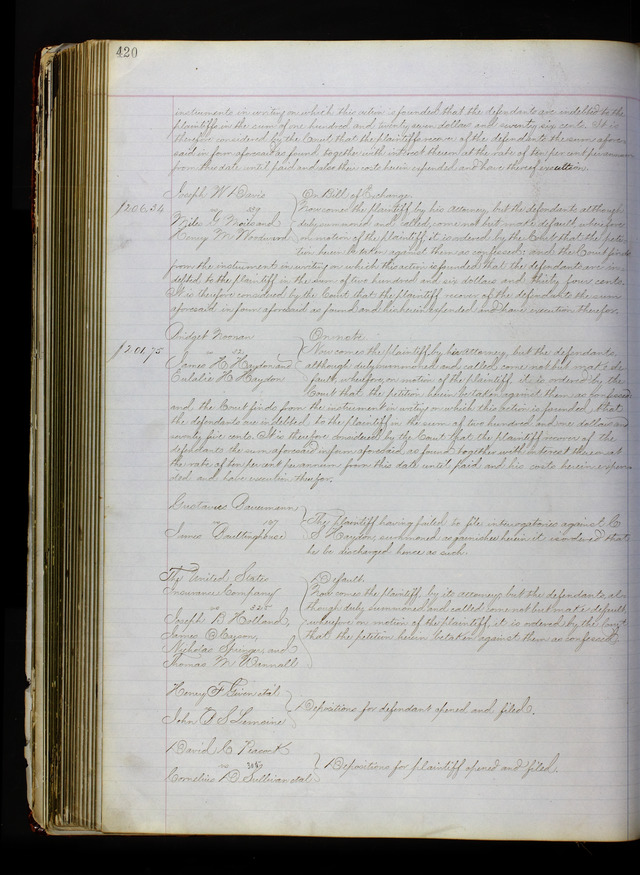 420
instruments in writing on which this action is founded that the defendants are indebted to the
plaintiffs in the sum of one hundred and ninety seven dollars and seventy six cents. It is
therefore considered by the Court that the plaintiffs recover of the defendants the sum afore-
said in form aforesaid as found, together with interest thereon at the rate of ten per cent per annum
from this date until paid and also their costs herein expended and have thereof execution.
Joseph W. Davis
On Bill of Exchange.
$206.34
vs
Now comes the plaintiff by his attorney, but the defendants although
and
duly summoned and called, come not but make default, wherefore
Henry M. Woodward
on motion of the plaintiff it is ordered by the Court that the peti-
tion herein be taken against them as confessed: and the Court finds
from the instrument in writing on which the action is founded that the defendants are in-
debted to the plaintiff in the sum of two hundred and six dollars and thirty four cents.
It is therefore considered by the Court that the plaintiff recover of the defendants the sum
aforesaid in form aforesaid as found and his costs herein expended and have execution therefor.
Bridget Noonan
On note.
$201.75
vs
Now comes the plaintiff by his attorney, but the defendants
James H. Haydon and
although duly summoned and called come not but make de-
Eulalie H. Haydon
fault, wherefore, on motion of the plaintiff it is ordered by the
Court that the petition herein be taken against them as confessed
and the Court finds from the instrument in writing on which this action is founded that
the defendants are indebted to the plaintiff in the sum of two hundred and one dollars and
seventy five cents. It is therefore considered by the Court that the plaintiff recover of the
defendants the sum aforesaid in form aforesaid as found together with interest thereon at
the rate of ten per cent per annum from this date until paid and his costs herein expen-
ded and have execution therefor.
Gustavus
vs
The Plaintiff having failed to file interrogatories against C.
James
S. Haydon, summoned as garnishee herein it is ordered that
he be discharged hence as such.
The United States
Default.
Insurance Company
Now comes the plaintiff by its attorney, but the defendants al-
vs
though duly summoned and called come not but make default
Joseph B. Holland,
wherefore on motion of the plaintiff it is ordered by the Court
James Bryson,
that the petition herein be taken against them as confessed
Nicholas Springer and
Thomas M. Wannall
Henry F. Given et al
Depositions for defendant opened and filed.
John A. S. Lemoine
David C. Peacock
vs
Depositions for plaintiff opened and filed.
Cornelius D. Sullivan et al